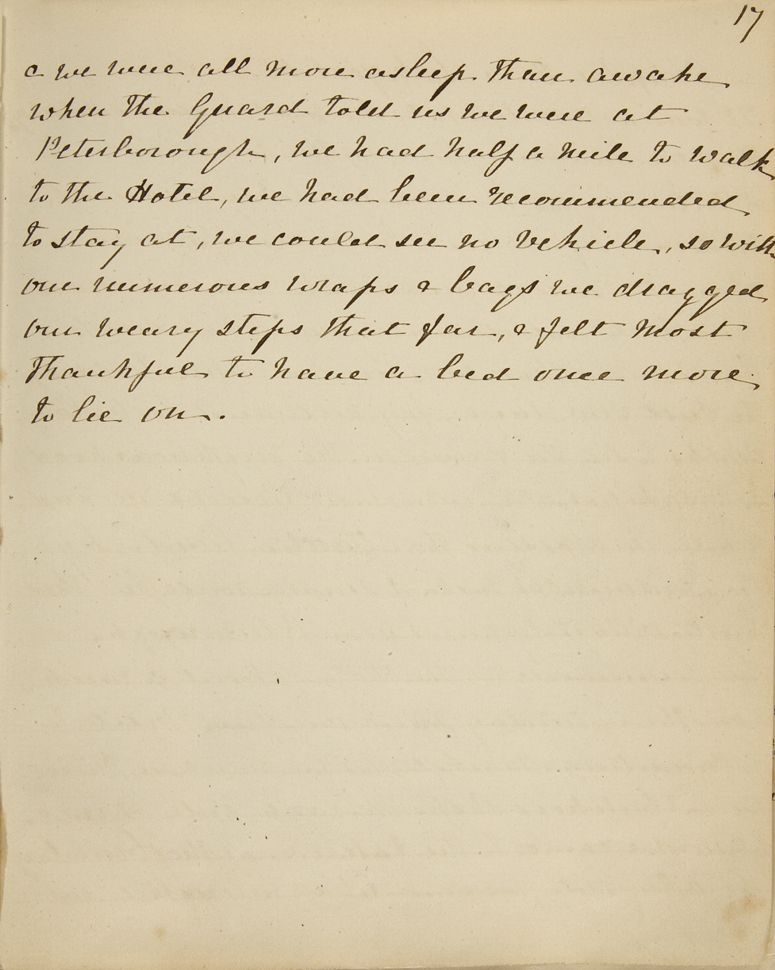 17
& we were all more asleep than awake
when the Guard told us we were at
Peterborough, we had half a mile to walk
to the Hotel, we had been recommended
to stay at, we could see no vehicle, so with
our numerous wraps & bags we dragged
our weary steps that far, & felt most
thankful to have a bed once more
to lie on.